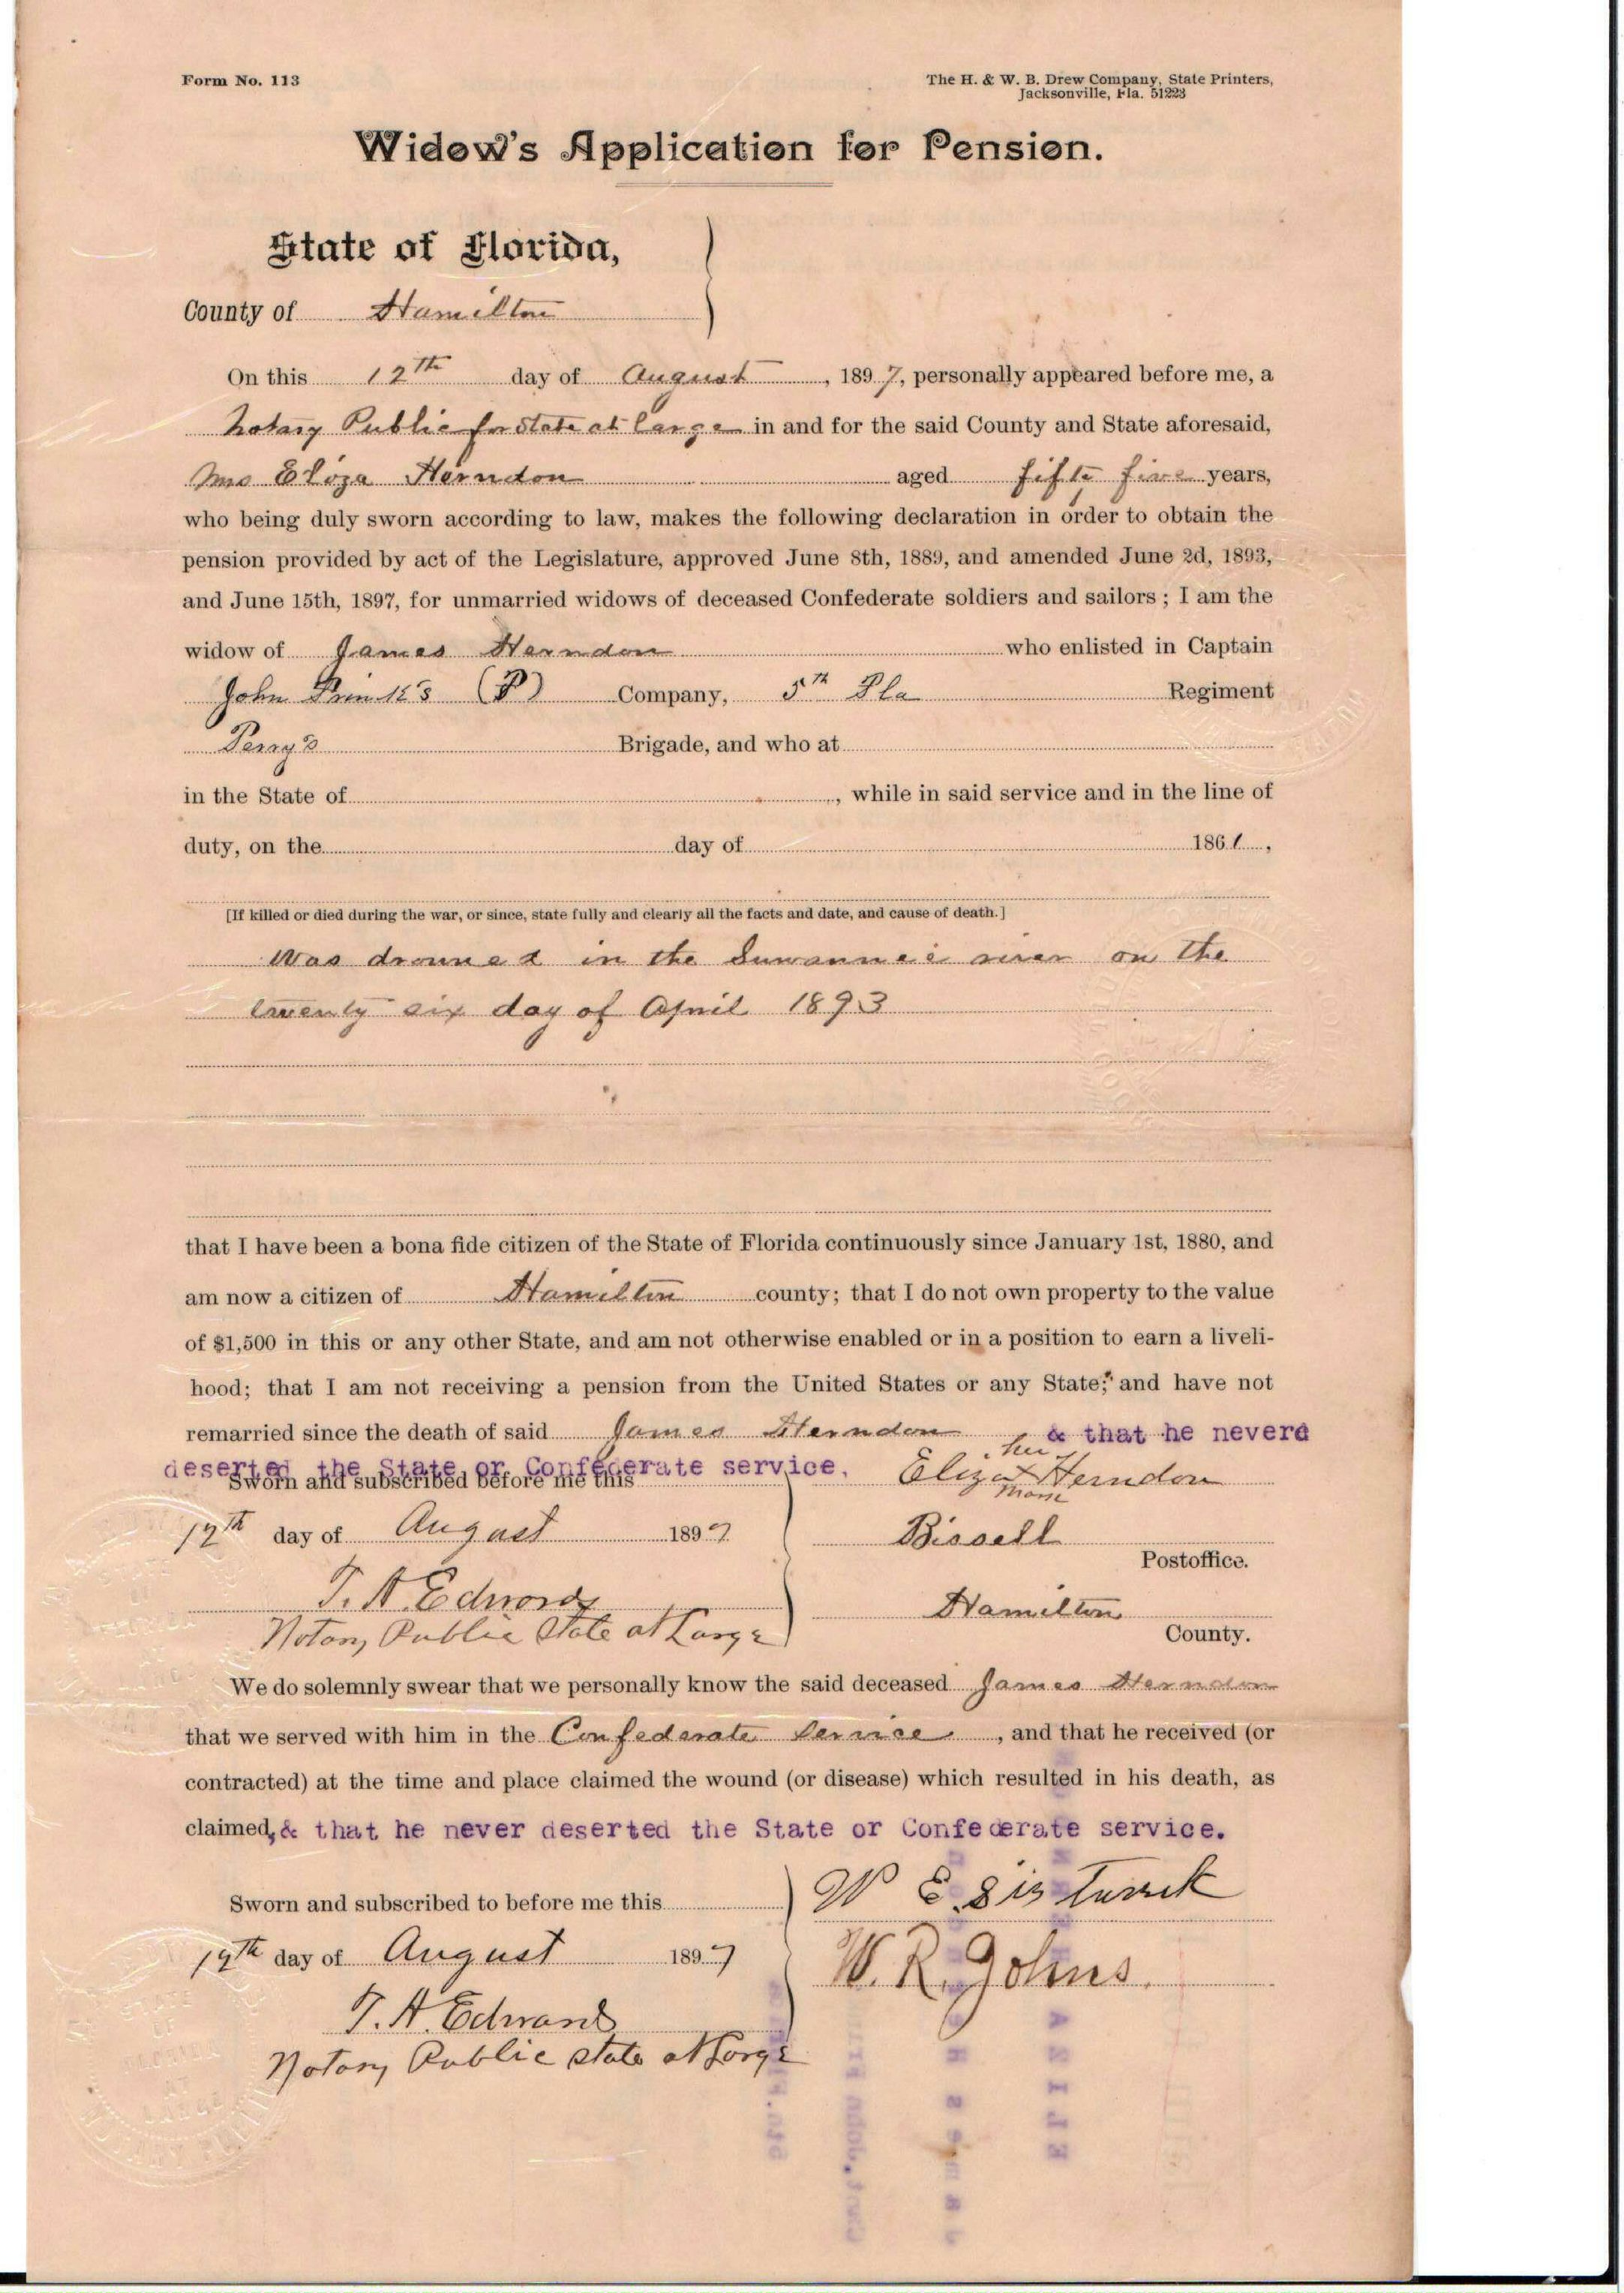 Form No. 113
The H. & W. B. Drew Company, State Printers,
Jacksonville, Fla. 51223
Widow's Application for Pension.
State of Florida,
County of Hamilton
On this 12th day of August, 1897, personally appeared before me, a
Notary Public for State at large in and for the said County and State aforesaid,
Mrs Eliza Herndon aged fifty five years,
who being duly sworn according to law, makes the following declaration in order to obtain the
pension provided by act of the Legislature, approved June 8th, 1889, and amended June 2d, 1893,
and June 15th, 1897, for unmarried widows of deceased Confederate soldiers and sailors; I am the
widow of James Herndon who enlisted in Captain
John Company, 5th Fla Regiment
Perry's Brigade, and who at
in the State of , while in said service and in the line of
duty, on the day of 1861,
[If killed or died during the war, or since, state fully and clearly all the facts and date, and cause of death.]
Was drowned in the Suwannee river on the
twenty six day of April 1893
that I have been a bona fide citizen of the State of Florida continuously since January 1st, 1880, and
am now a citizen of Hamilton county; that I do not own property to the value
of $1,500 in this or any other State, and am not otherwise enabled or in a position to earn a liveli-
hood; that I am not receiving a pension from the United States or any State; and have not
remarried since the death of said James Herndon & that he neverd
deserted the State or Confederate service.
Sworn and subscribed before me this
her
Eliza x Herndon
mark
12th day of August 1897
Bissell
Postoffice.
T. A. Edwards
Hamilton
Notary Public State at Large
County.
We do solemnly swear that we personally know the said deceased James Herndon
that we served with him in the Confederate Service, and that he received (or
contracted) at the time and place claimed the wound (or disease) which resulted in his death, as
claimed, & that he never deserted the State or Confederate service.
Sworn and subscribed to before me this
W E
12th day of August 1897
W. R. Johns.
T. A. Edwards
Notary Public State at Large